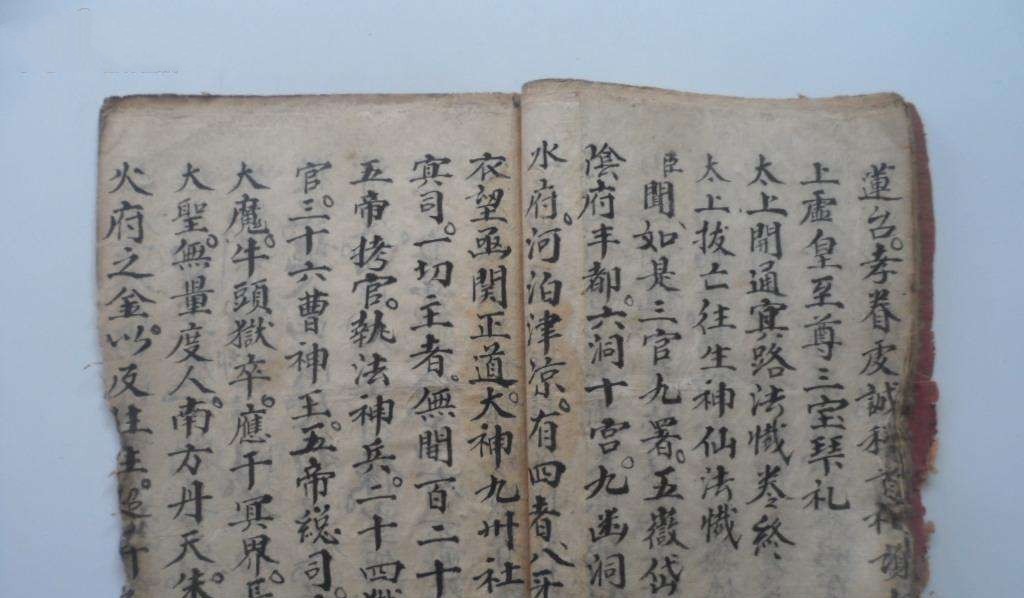 蓮台。孝眷虔誠稽首
上虛皇至尊三宝琹礼
太上開通寘路法懺卷終
太上拔亡往生神仙法懺
臣聞、如是三官九署。五嶽岱
陰府丰都。六洞十宮。九幽洞
水府。河泊津凉。有四者、八牙
衣望函関正道。大神九州社
寘司。一切主者。無間百二十
五帝拷官。執法神兵。二十四獄
官。三十六曹神王。五帝総司。
大魔。牛頭獄卒。應干冥界。
大聖。無量度人。南方丹天。朱
火府之金。以反生